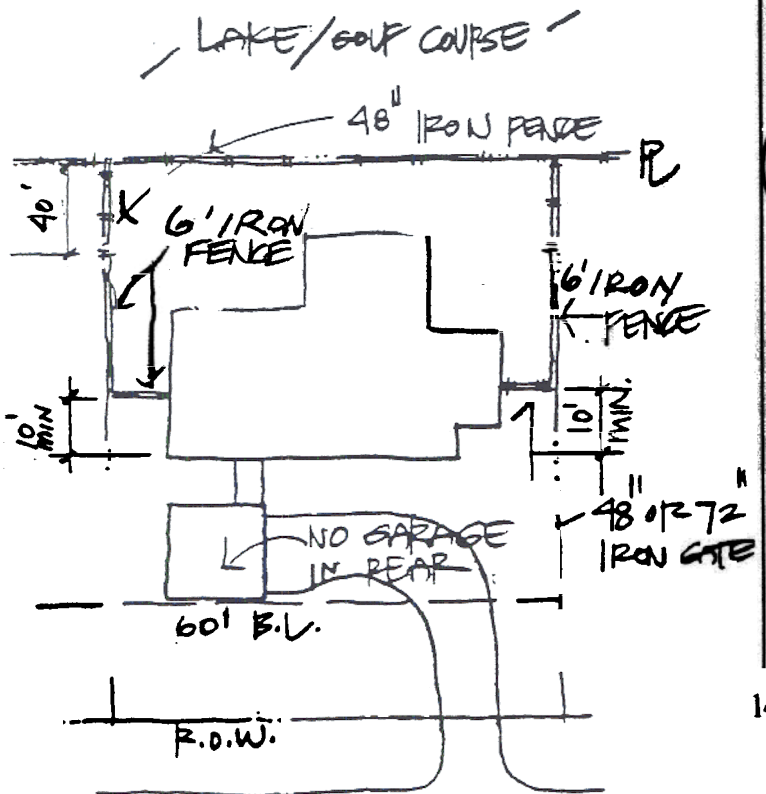 LAKE/GOLF COURSE
48" IRON FENCE
PL
40'
6' IRON
FENCE
6' IRON
FENCE
10'
MIN
10'
MIN.
48" OR 72"
IRON GATE
NO GARAGE
IN REAR
60' B.L.
R.O.W.